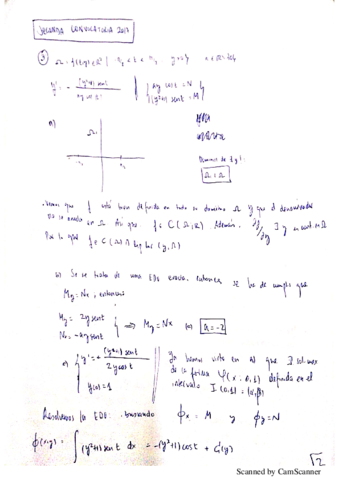 SEGUNDA CONVOCATORIA 2017
③ Ω = {(t,y) ∈ R² | -π/2 < t < π/2, y>0} a ∈ R-{0}
y' = - (y²+1) sent / ay cost { ay cost = N
(y²+1) sent = M
a)
Ω
-π/2 π/2
Dominio de f y
Ω = Ω
que f está bien definida en todo su dominio Ω y que el denominador
no se anula en Ω. Así que f ∈ C(Ω, R). Además, ∂f/∂y ∃ y es cont. en Ω
Por lo que f ∈ C(Ω) ∩ Lip loc (y, Ω)
Si se trata de una EDO exacta, entonces se ha de cumplir que
My = Nx, entonces
My = 2y sent
Nx = -ay sent } ⟹ My = Nx a = -2
{ y' = + (y²+1) sent / 2y cost
y(0) = 1
Ya hemos visto en a) que ∃ sol
de la forma φ(x; 0, 1) definida en el
intervalo I (0,1) = (α, β)
Resolvemos la EDO: buscando Φx = M y Φy = N
Φ(x,y) = ∫ (y²+1) sent dx = -(y²+1) cost + G(y)
√2
Scanned by CamScanner